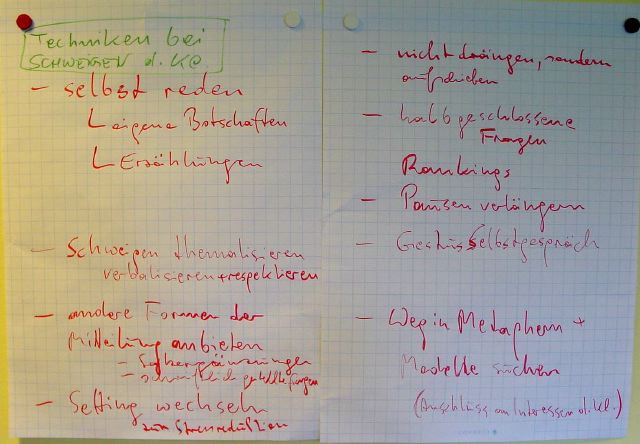 Techniken bei
SCHWEIGEN d. Kl.
- selbst reden
eigene Botschaften
Erzählungen
- Schweigen thematisieren
verbalisieren + respektieren
- andere Formen der
Mitteilung anbieten
- Satzergänzungen
- schriftlich gestellte Fragen
- Setting wechseln
zum Stressreduktion
- nicht drängen, sondern
aufschieben
- halbgeschlossene
Fragen
Rankings
- Pausen verlängern
- Selbstgespräch
- Weg in Metaphern +
Modelle suchen
(Anschluss an Interessen d. Kl.)